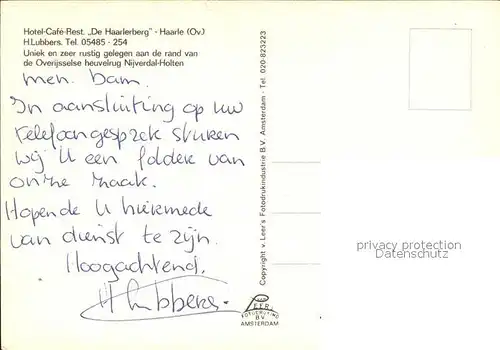 Hotel-Café-Rest. „De Haarlerberg" - Haarle (Ov.)
H.Lubbers. Tel. 05485 - 254
Uniek en zeer rustig gelegen aan de rand van
de Overijsselse heuvelrug Nijverdal-Holten
men. Dam.
In aansluiting op uw
telefoongesprek sturen
wij U een folder van
onze zaak.
Hopende U hiermede
van dienst te zijn.
Hoogachtend,
HLubbers.
Copyright v. Leer's Fotodrukindustrie B.V. Amsterdam - Tel. 020-823223
VAN
LEER'S
FOTODRUKIND
B.V.
AMSTERDAM
privacy protection
Datenschutz